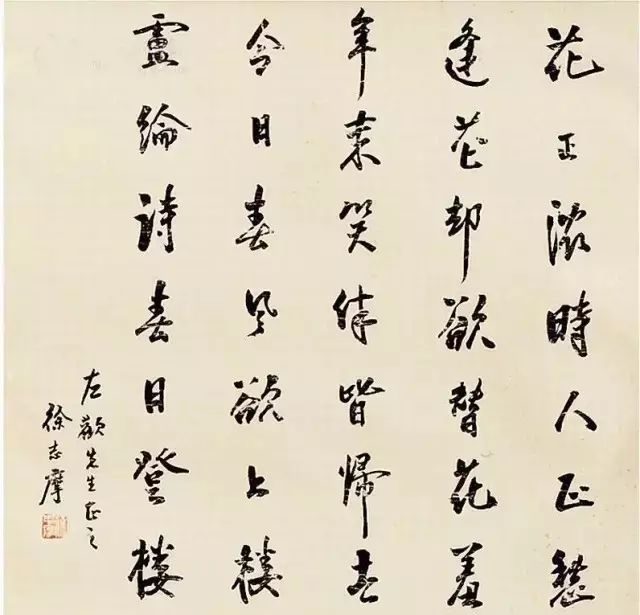 花正濃時人正愁
逢花却欲替花羞
年來笑伴皆歸去
今日春風欲上樓
盧綸詩春日登樓
先生正之
徐志摩